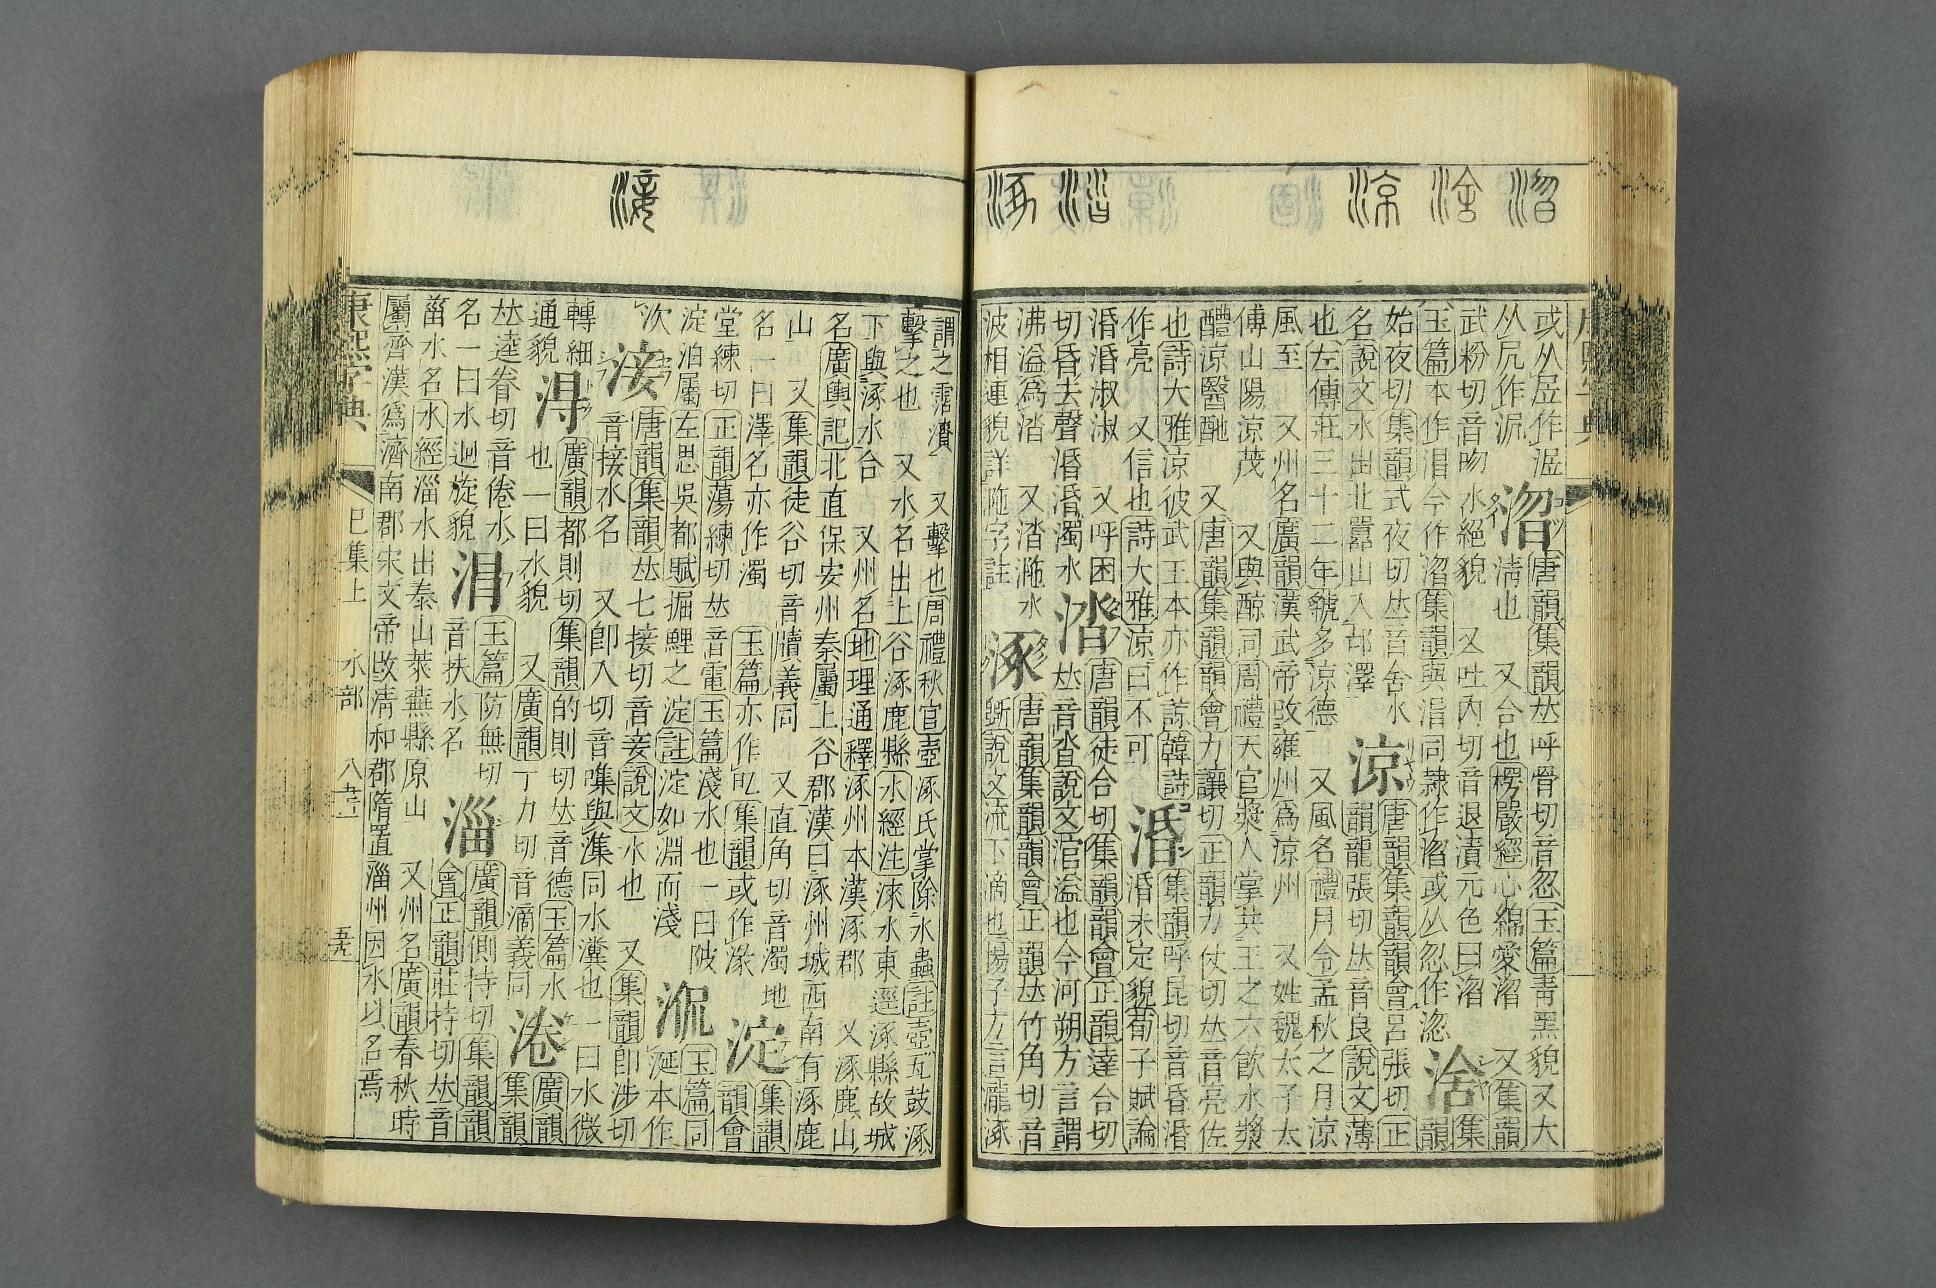 淴 涻 涼 涾 涿
或从𡰥作涺
从尻作泥
淴
唐韻集韻𠀤呼骨切音忽玉篇靑黑貌又大
淸也 又合也楞嚴經心綿愛淴 又集韻
武粉切音吻水絕貌 又吐內切音退漬元色曰淴
涻
集韻
玉篇本作㴆今作淴集韻與㴆同隷作淴或从忍作涊
始夜切集韻式夜切𠀤音舍水
名說文水出北嚻山入邙澤
涼
唐韻集韻韻會呂張切正
韻龍張切𠀤音良說文薄
也左傳莊三十二年虢多涼德 又風名禮月令孟秋之月涼
風至 又州名廣韻漢武帝改雍州爲涼州 又姓魏太子太
傅山陽涼茂 又與醇同周禮天官漿人掌共王之六飮水漿
醴涼醫酏 又唐韻集韻韻會力讓切正韻力仗切𠀤音亮佐
也詩大雅涼彼武王本亦作諒韓詩
作亮 又信也詩大雅涼曰不可
涽
集韻呼昆切音昏涽
涽未定貌荀子賦論
涽涽淑淑 又呼困
切昏去聲涽涽濁水
涾
唐韻徒合切集韻韻會正韻達合切
𠀤音沓說文涫溢也今河朔方言謂
沸溢爲涾 又涾㴃水
波相連貌詳㴃字註
涿
唐韻集韻韻會正韻𠀤竹角切音
斲說文流下滴也揚子方言瀧涿
康熙字典
淁
謂之霑瀆 又擊也周禮秋官壺涿氏掌除水蟲註壺瓦鼓涿
擊之也 又水名出上谷涿鹿縣水經注淶水東逕涿縣故城
下與涿水合 又州名地理通釋涿州本漢涿郡 又涿鹿山
名廣輿記北直保安州秦屬上谷郡漢曰涿州城西南有涿鹿
山 又集韻徒谷切音牘義同 又直角切音濁地
名一曰澤名亦作濁 玉篇亦作㔾集韻或作㴅
淀
集韻
韻會
堂練切正韻蕩練切𠀤音電玉篇淺水也一曰陂
淀泊屬左思吳都賦掘鯉之淀註淀如淵而淺
㳻
玉篇同
涎本作
次
淁
唐韻集韻𠀤七接切音妾說文水也 又集韻卽涉切
音接水名 又卽入切音㗱與潗同水瀵也一曰水微
轉細
通貌
淂
廣韻都則切集韻的則切𠀤音德玉篇水
也一曰水貌 又廣韻丁力切音滴義同
淃
廣韻集韻
𠀤逵眷切音倦水
名一曰水迴旋貌
㳙
玉篇防無切
音扶水名
淄
廣韻側持切集韻韻
會正韻莊持切𠀤音
菑水名水經淄水出泰山萊蕪縣原山 又州名廣韻春秋時
屬齊漢爲濟南郡宋文帝改淸和郡隋置淄州因水以名焉
康熙字典 巳集上 水部 八畫